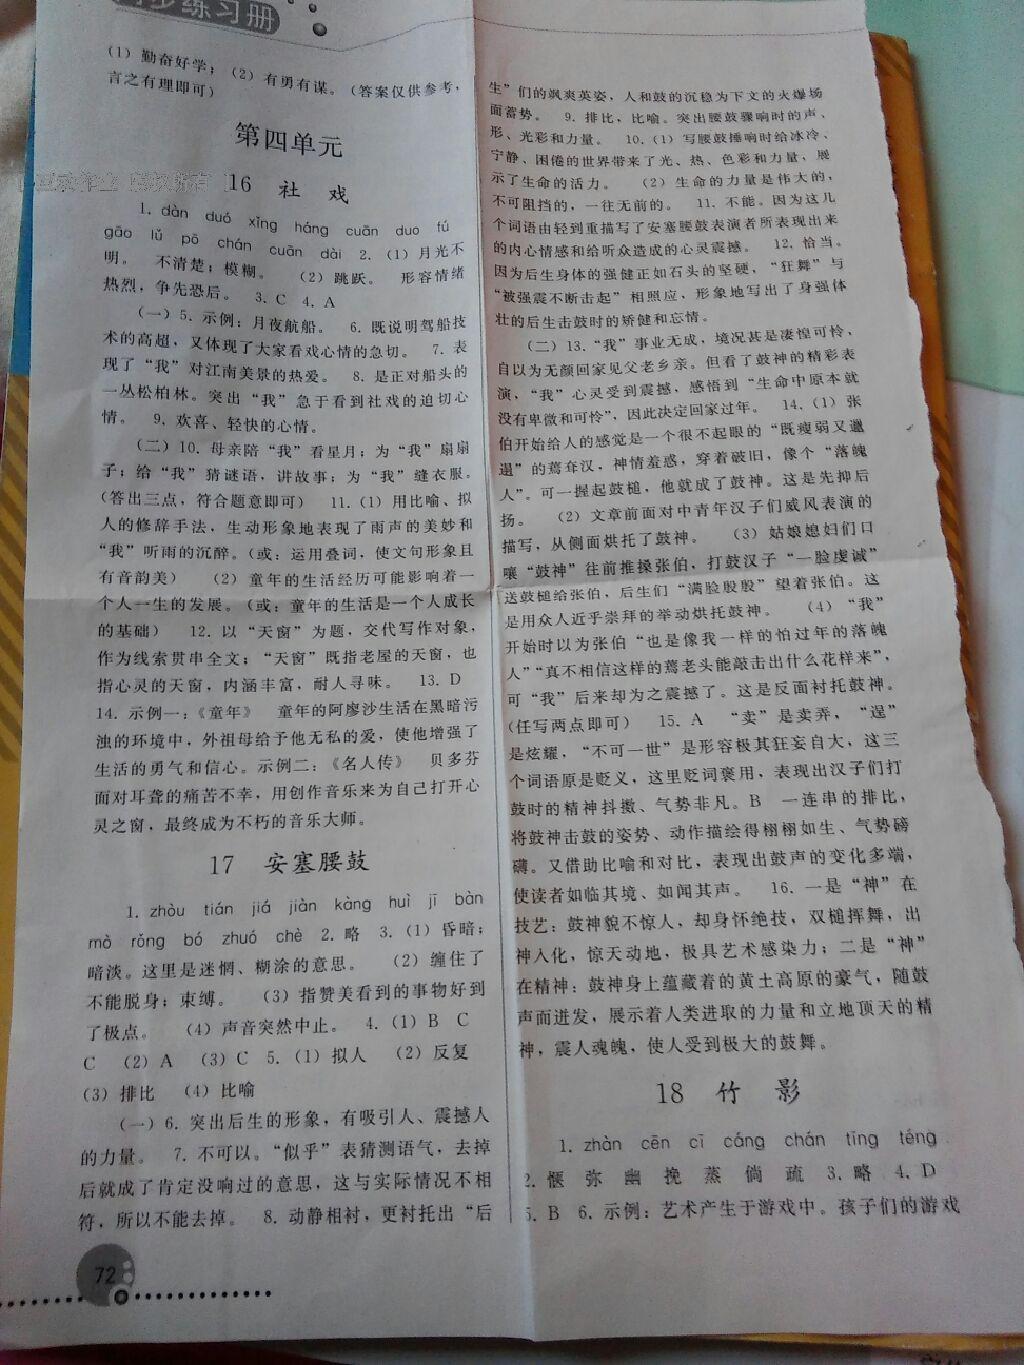 同步练习册
(1) 勤奋好学；(2) 有勇有谋。（答案仅供参考，
言之有理即可）
第四单元
16 社 戏
1. dàn duó xǐng háng cuān duo fú
gāo lǔ pō chán cuān dài 2. (1) 月光不
明。 不清楚；模糊。 (2) 跳跃。 形容情绪
热烈，争先恐后。 3. C 4. A
(一) 5. 示例：月夜航船。 6. 既说明驾船技
术的高超，又体现了大家看戏心情的急切。 7. 表
现了“我”对江南美景的热爱。 8. 是正对船头的
一丛松柏林。突出“我”急于看到社戏的迫切心
情。 9. 欢喜、轻快的心情。
(二) 10. 母亲陪“我”看星月；为“我”扇扇
子；给“我”猜谜语，讲故事；为“我”缝衣服。
（答出三点，符合题意即可） 11. (1) 用比喻、拟
人的修辞手法，生动形象地表现了雨声的美妙和
“我”听雨的沉醉。（或：运用叠词，使文句形象且
有音韵美） (2) 童年的生活经历可能影响着一
个人一生的发展。（或：童年的生活是一个人成长
的基础） 12. 以“天窗”为题，交代写作对象，
作为线索贯串全文；“天窗”既指老屋的天窗，也
指心灵的天窗，内涵丰富，耐人寻味。 13. D
14. 示例一：《童年》 童年的阿廖沙生活在黑暗污
浊的环境中，外祖母给予他无私的爱，使他增强了
生活的勇气和信心。示例二：《名人传》 贝多芬
面对耳聋的痛苦不幸，用创作音乐来为自己打开心
灵之窗，最终成为不朽的音乐大师。
17 安塞腰鼓
1. zhòu tián jiá jiàn kàng huì jī bàn
mò rǒng bó zhuó chè 2. 略 3. (1) 昏暗；
暗淡。这里是迷惘、糊涂的意思。 (2) 缠住了
不能脱身；束缚。 (3) 指赞美看到的事物好到
了极点。 (4) 声音突然中止。 4. (1) B C
C (2) A (3) C 5. (1) 拟人 (2) 反复
(3) 排比 (4) 比喻
(一) 6. 突出后生的形象，有吸引人、震撼人
的力量。 7. 不可以。“似乎”表猜测语气，去掉
后就成了肯定没响过的意思，这与实际情况不相
符，所以不能去掉。 8. 动静相衬，更衬托出“后
72
生”们的飒爽英姿，人和鼓的沉稳为下文的火爆场
面蓄势。 9. 排比，比喻。突出腰鼓骤响时的声、
形、光彩和力量。 10. (1) 写腰鼓捶响时给冰冷、
宁静、困倦的世界带来了光、热、色彩和力量，展
示了生命的活力。 (2) 生命的力量是伟大的，
不可阻挡的，一往无前的。 11. 不能。因为这几
个词语由轻到重描写了安塞腰鼓表演者所表现出来
的内心情感和给听众造成的心灵震撼。 12. 恰当。
因为后生身体的强健正如石头的坚硬，“狂舞”与
“被强震不断击起”相照应，形象地写出了身强体
壮的后生击鼓时的矫健和忘情。
(二) 13. “我”事业无成，境况甚是凄惶可怜，
自以为无颜回家见父老乡亲。但看了鼓神的精彩表
演，“我”心灵受到震撼，感悟到“生命中原本就
没有卑微和可怜”，因此决定回家过年。 14. (1) 张
伯开始给人的感觉是一个很不起眼的“既瘦弱又邋
遢”的蔫耷汉，神情羞惑，穿着破旧，像个“落魄
人”。可一握起鼓槌，他就成了鼓神。这是先抑后
扬。 (2) 文章前面对中青年汉子们威风表演的
描写，从侧面烘托了鼓神。 (3) 姑娘媳妇们口
嚷“鼓神”往前推搡张伯，打鼓汉子“一脸虔诚”
送鼓槌给张伯，后生们“满脸殷殷”望着张伯。这
是用众人近乎崇拜的举动烘托鼓神。 (4) “我”
开始时以为张伯“也是像我一样的怕过年的落魄
人”“真不相信这样的蔫老头能敲击出什么花样来”，
可“我”后来却为之震撼了。这是反面衬托鼓神。
（任写两点即可） 15. A “卖”是卖弄，“逞”
是炫耀，“不可一世”是形容极其狂妄自大，这三
个词语原是贬义，这里贬词褒用，表现出汉子们打
鼓时的精神抖擞、气势非凡。B 一连串的排比，
将鼓神击鼓的姿势、动作描绘得栩栩如生、气势磅
礴。又借助比喻和对比，表现出鼓声的变化多端，
使读者如临其境、如闻其声。 16. 一是“神”在
技艺：鼓神貌不惊人，却身怀绝技，双槌挥舞，出
神入化，惊天动地，极具艺术感染力；二是“神”
在精神：鼓神身上蕴藏着的黄土高原的豪气，随鼓
声而迸发，展示着人类进取的力量和立地顶天的精
神，震人魂魄，使人受到极大的鼓舞。
18 竹 影
1. zhàn cēn cī cáng chán tīng téng
2. 惬 弥 幽 挽 蒸 倘 疏 3. 略 4. D
5. B 6. 示例：艺术产生于游戏中。孩子们的游戏